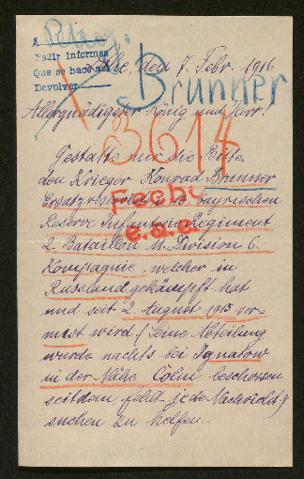 A Rusg.
Pedir informes
Que se hace
Devolver
den 7. Febr. 1916
Brunner
Allergnädigster König und Herr.
3614
Gestatte mir die Bitte
den Krieger Konrad Brunner
Ersatzreservist bayrischen
Reserve Infanterie Regiment
2. Bataillon 11. Division 6.
Kompagnie, welcher in
Russland gekämpft hat
und seit 2. August 1915 ver-
misst wird (Seine Abteilung
wurde nachts bei Ignatow
in der Nähe Colm beschossen
seitdem fehlt jede Nachricht)
suchen zu helfen.